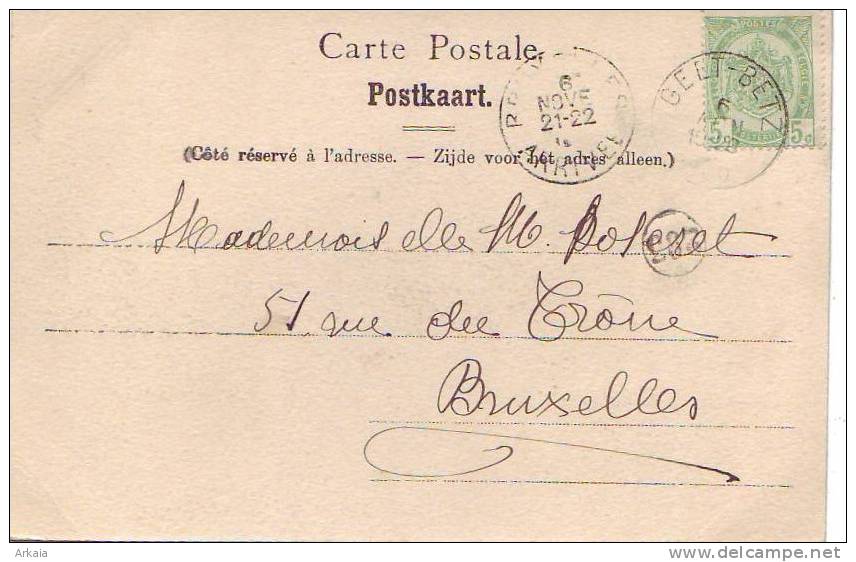 Carte Postale.
Postkaart.
(Côté réservé à l'adresse. — Zijde voor het adres alleen.)
6
NOVE
21-22
GEET-BETZ
6
5c 5c
Mademoiselle M.
51 rue du Trône
Bruxelles
Arkaia
www.delcampe.net